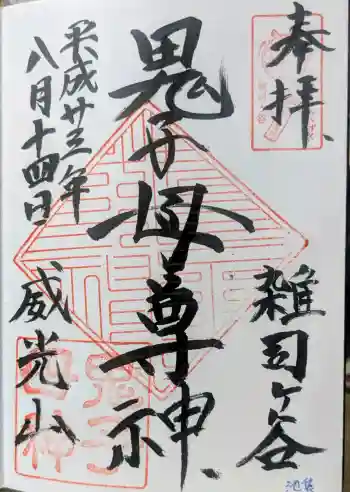 奉拝
雑司ケ谷
鬼子母尊神
平成廿三年
八月十四日
威光山
池袋